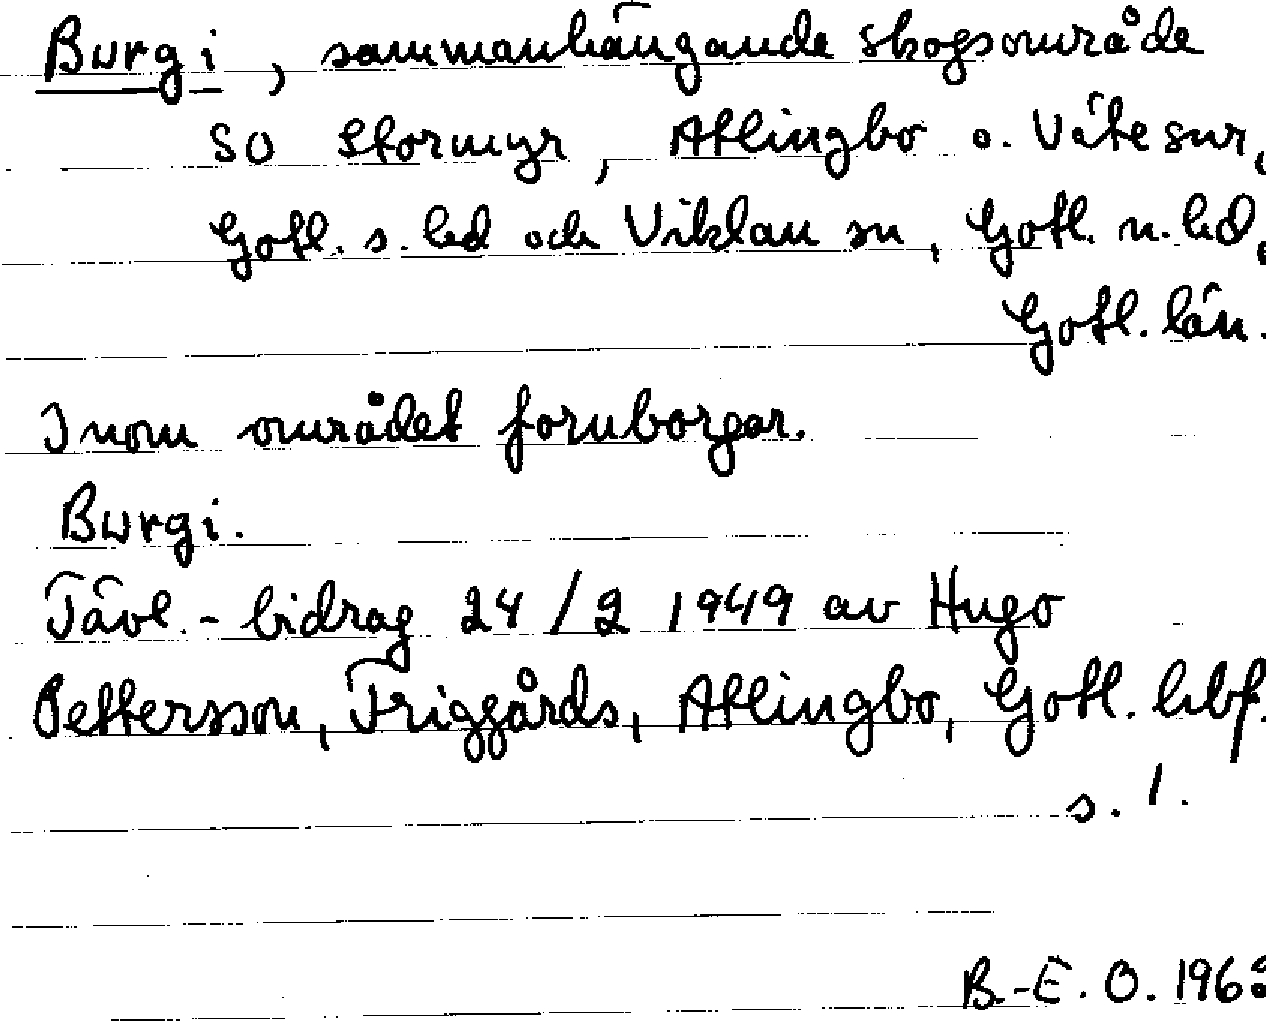 Burgi, sammanhängande skogsområde
SO Stormyr, Atlingbo o. Väte snr,
Gotl. s. hd och Viklau sn, Gotl. n. hd,
Gotl. län.
Inom området fornborgar.
Burgi.
Tävl.-bidrag 24/2 1949 av Hugo
Pettersson, Friggårds, Atlingbo, Gotl. hbf.
s. 1.
B.-E. O.